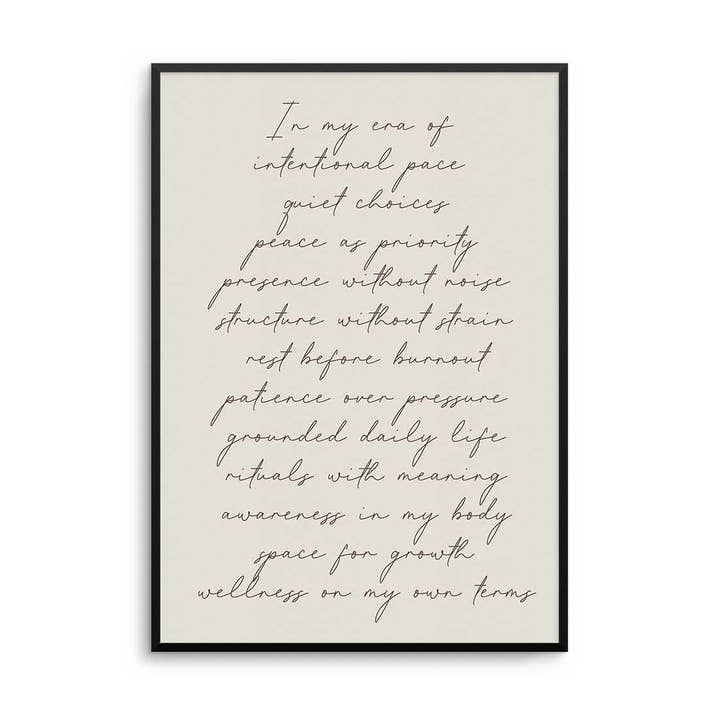 In my era of
intentional pace
quiet choices
peace as priority
presence without noise
structure without strain
rest before burnout
patience over pressure
grounded daily life
rituals with meaning
awareness in my body
space for growth
wellness on my own terms